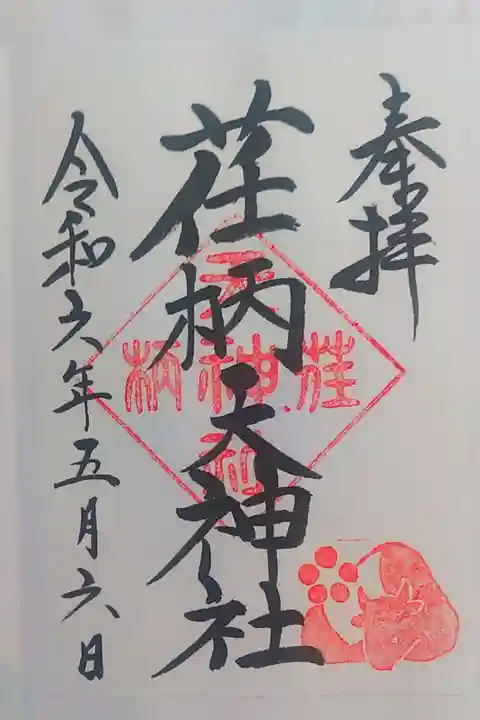 奉拝
荏柄天神社
荏柄
天神社
令和六年五月六日